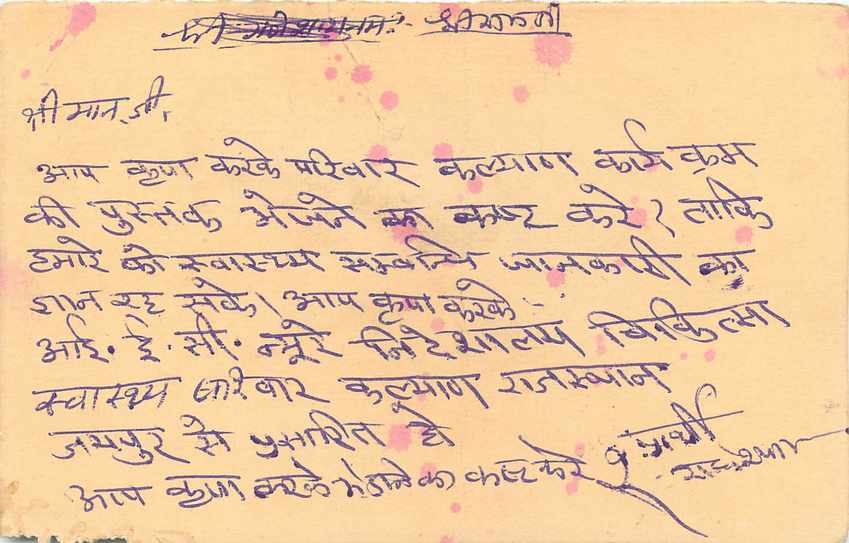 श्री गणेशाय नमः
श्रीमान जी,
आप कृपा करके परिवार कल्याण कार्य क्रम
की पुस्तक भेजने का कष्ट करे? ताकि
हमारे को स्वास्थ्य सम्बन्धि जानकारी का
ज्ञान रह सके। आप कृपा करके
आई. ई. सी. ब्यूरे निदेशालय चिकित्सा
स्वास्थ्य परिवार कल्याण राजस्थान
जयपुर से प्रसारित हो
आप कृपा करके भेजने का कष्ट करे
प्रार्थी